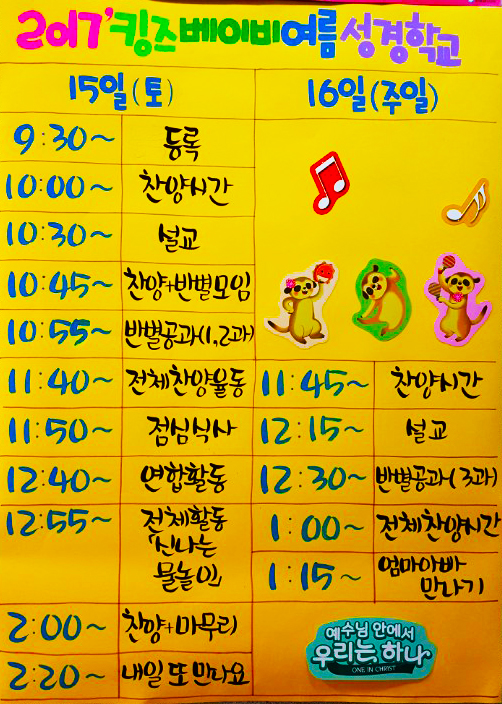 2017' 킹즈베이비여름성경학교
15일(토) 16일(주일)
9:30~ 등록
10:00~ 찬양시간
10:30~ 설교
10:45~ 찬양+반별모임
10:55~ 반별공과(1,2과)
11:40~ 전체찬양율동 11:45~ 찬양시간
11:50~ 점심식사 12:15~ 설교
12:40~ 연합활동 12:30~ 반별공과(3과)
12:55~ 전체활동 1:00~ 전체찬양시간
「신나는
물놀이」 1:15~ 엄마아빠
만나기
2:00~ 찬양+마무리
2:20~ 내일 또 만나요
예수님 안에서
우리는, 하나
ONE IN CHRIST